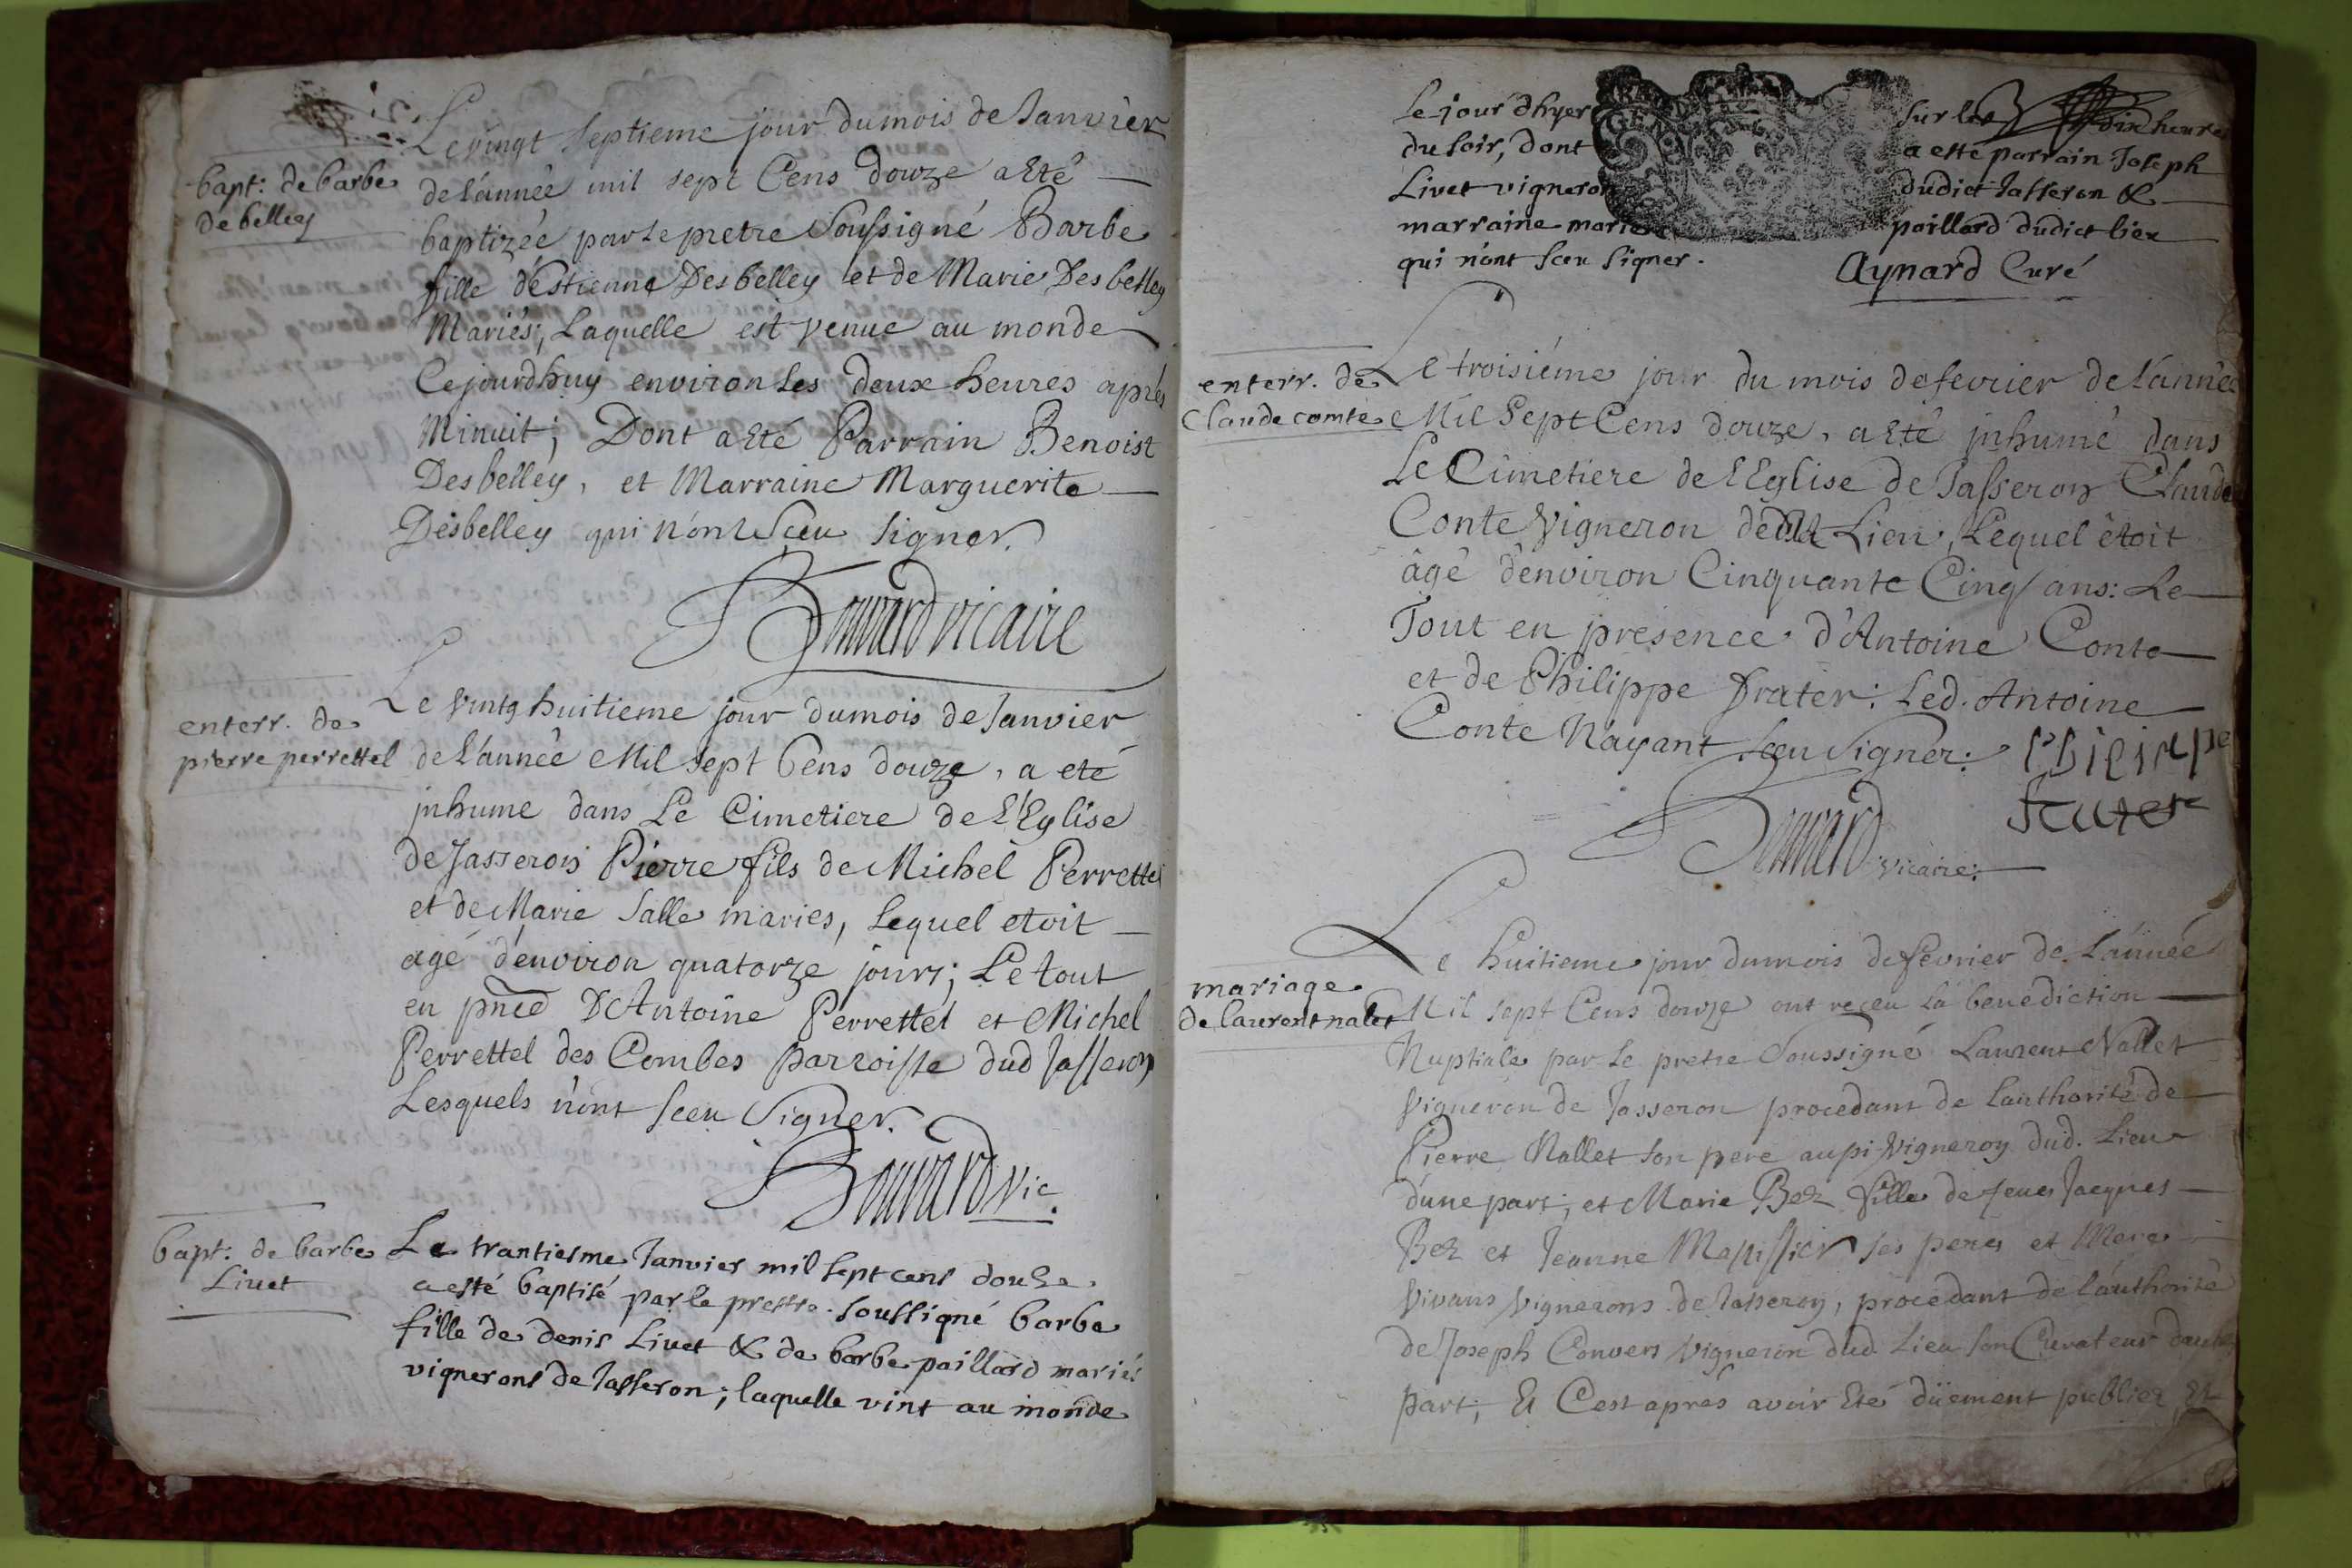 Le vingt septieme jour du mois de Janvier
bapt: de barbe
de belley
de l'année mil sept Cens douze a Eté
baptizée par le pretre Soussigné Barbe
fille d'Estienne Desbelley et de Marie Desbelley
Mariés; Laquelle est venue au monde
Cejourdhuy environ les deux heures aprés
Minuit; Dont a Eté Parrain Benoist
Desbelley, et Marraine Marguerite
Desbelley qui n'ont Sceu signer.
Bouvard vicaire
enterr. de
pierre perrettel
Le vintg huitieme jour du mois de Janvier
de l'année Mil sept Cens douze, a eté
jnhume dans Le Cimetiere de L'Eglise
de Jasseron Pierre fils de Michel Perrettel
et de Marie Salle maries, Lequel etoit
agé d'environ quatorze jours; Le tout
en pnce D'Antoine Perrettel et Michel
Perrettel des Combes parroisse dud Jasseron
Lesquels n'ont sceu Signer.
Bouvard vic.
bapt: de barbe
Livet
Le trantiesme Janvier mil sept cens douze
a esté baptisé par le prestre soussigné barbe
fille de denis Livet & de barbe paillard mariés
vignerons de Jasseron; laquelle vint au monde
le jour dhyer sur les dix heures
du soir, dont a esté parrain Joseph
Livet vigneron dudict Jasseron &
marraine mariere paillard dudict lieu
qui n'ont sceu signer. Aynard Curé
enterr. de
Claude comte
Le troisiéme jour du mois de fevrier de l'année
Mil Sept Cens douze, a Eté jnhumé dans
Le Cimetiere de L'Eglise de Jasseron Claude
Conte Vigneron dud Lieu, Lequel étoit
âgé d'environ Cinquante Cinq ans: Le
Tout en presence d'Antoine Conte
et de Philippe frater: Led. Antoine
Conte N'ayant sceu signer: Philippe
frater
Bouvard vicaire:
mariage
de laurent nalet
Le huitieme jour du mois de fevrier de l'année
Mil sept Cens douze ont receu la benediction
Nuptiale par le pretre Soussigné Laurent Nallet
Vigneron de Jasseron procedant de l'authorité de
Pierre Nallet son pere aussi Vigneron dud. Lieu
d'une part; et Marie Bez fille de feuer Jacques
Bez et Jeanne Massissier ses peres et Meres
Vivans Vignerons de Jasseron, procedant de l'authorité
de Joseph Convers Vigneron dud. Lieu son Curateur d'autre
part; Et C'est apres avoir Eté düement publiez Et